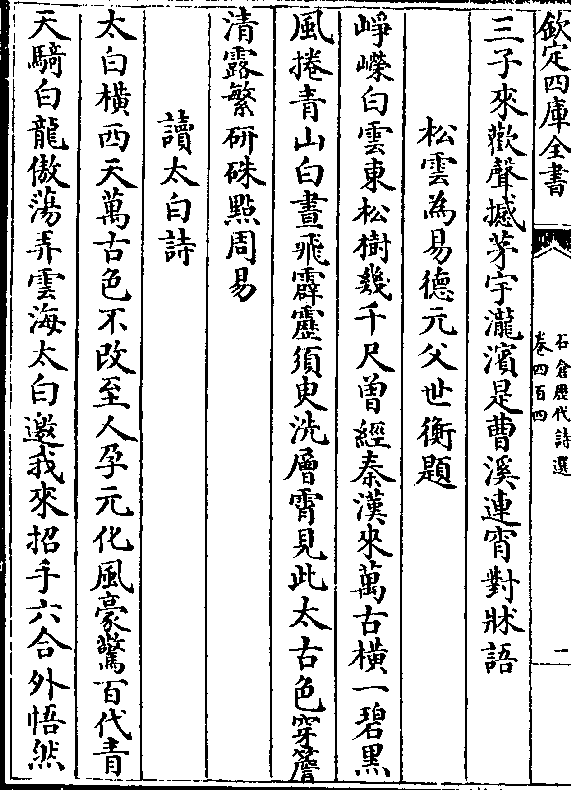 欽定四庫全書
石倉歷代詩選
卷四百四
一
三子來歡聲撼茅宇瀧濱是曹溪連宵對牀語
松雲為易德元父世衡題
崢嶸白雲東松樹幾千尺曽經秦漢來萬古橫一碧黑
風捲青山白晝飛霹靂須臾洗層霄見此太古色穿簷
清露繁研硃㸃周易
讀太白詩
太白橫西天萬古色不改至人孕元化風豪驚百代青
天騎白龍傲蕩弄雲海太白邀我來招手六合外悟然